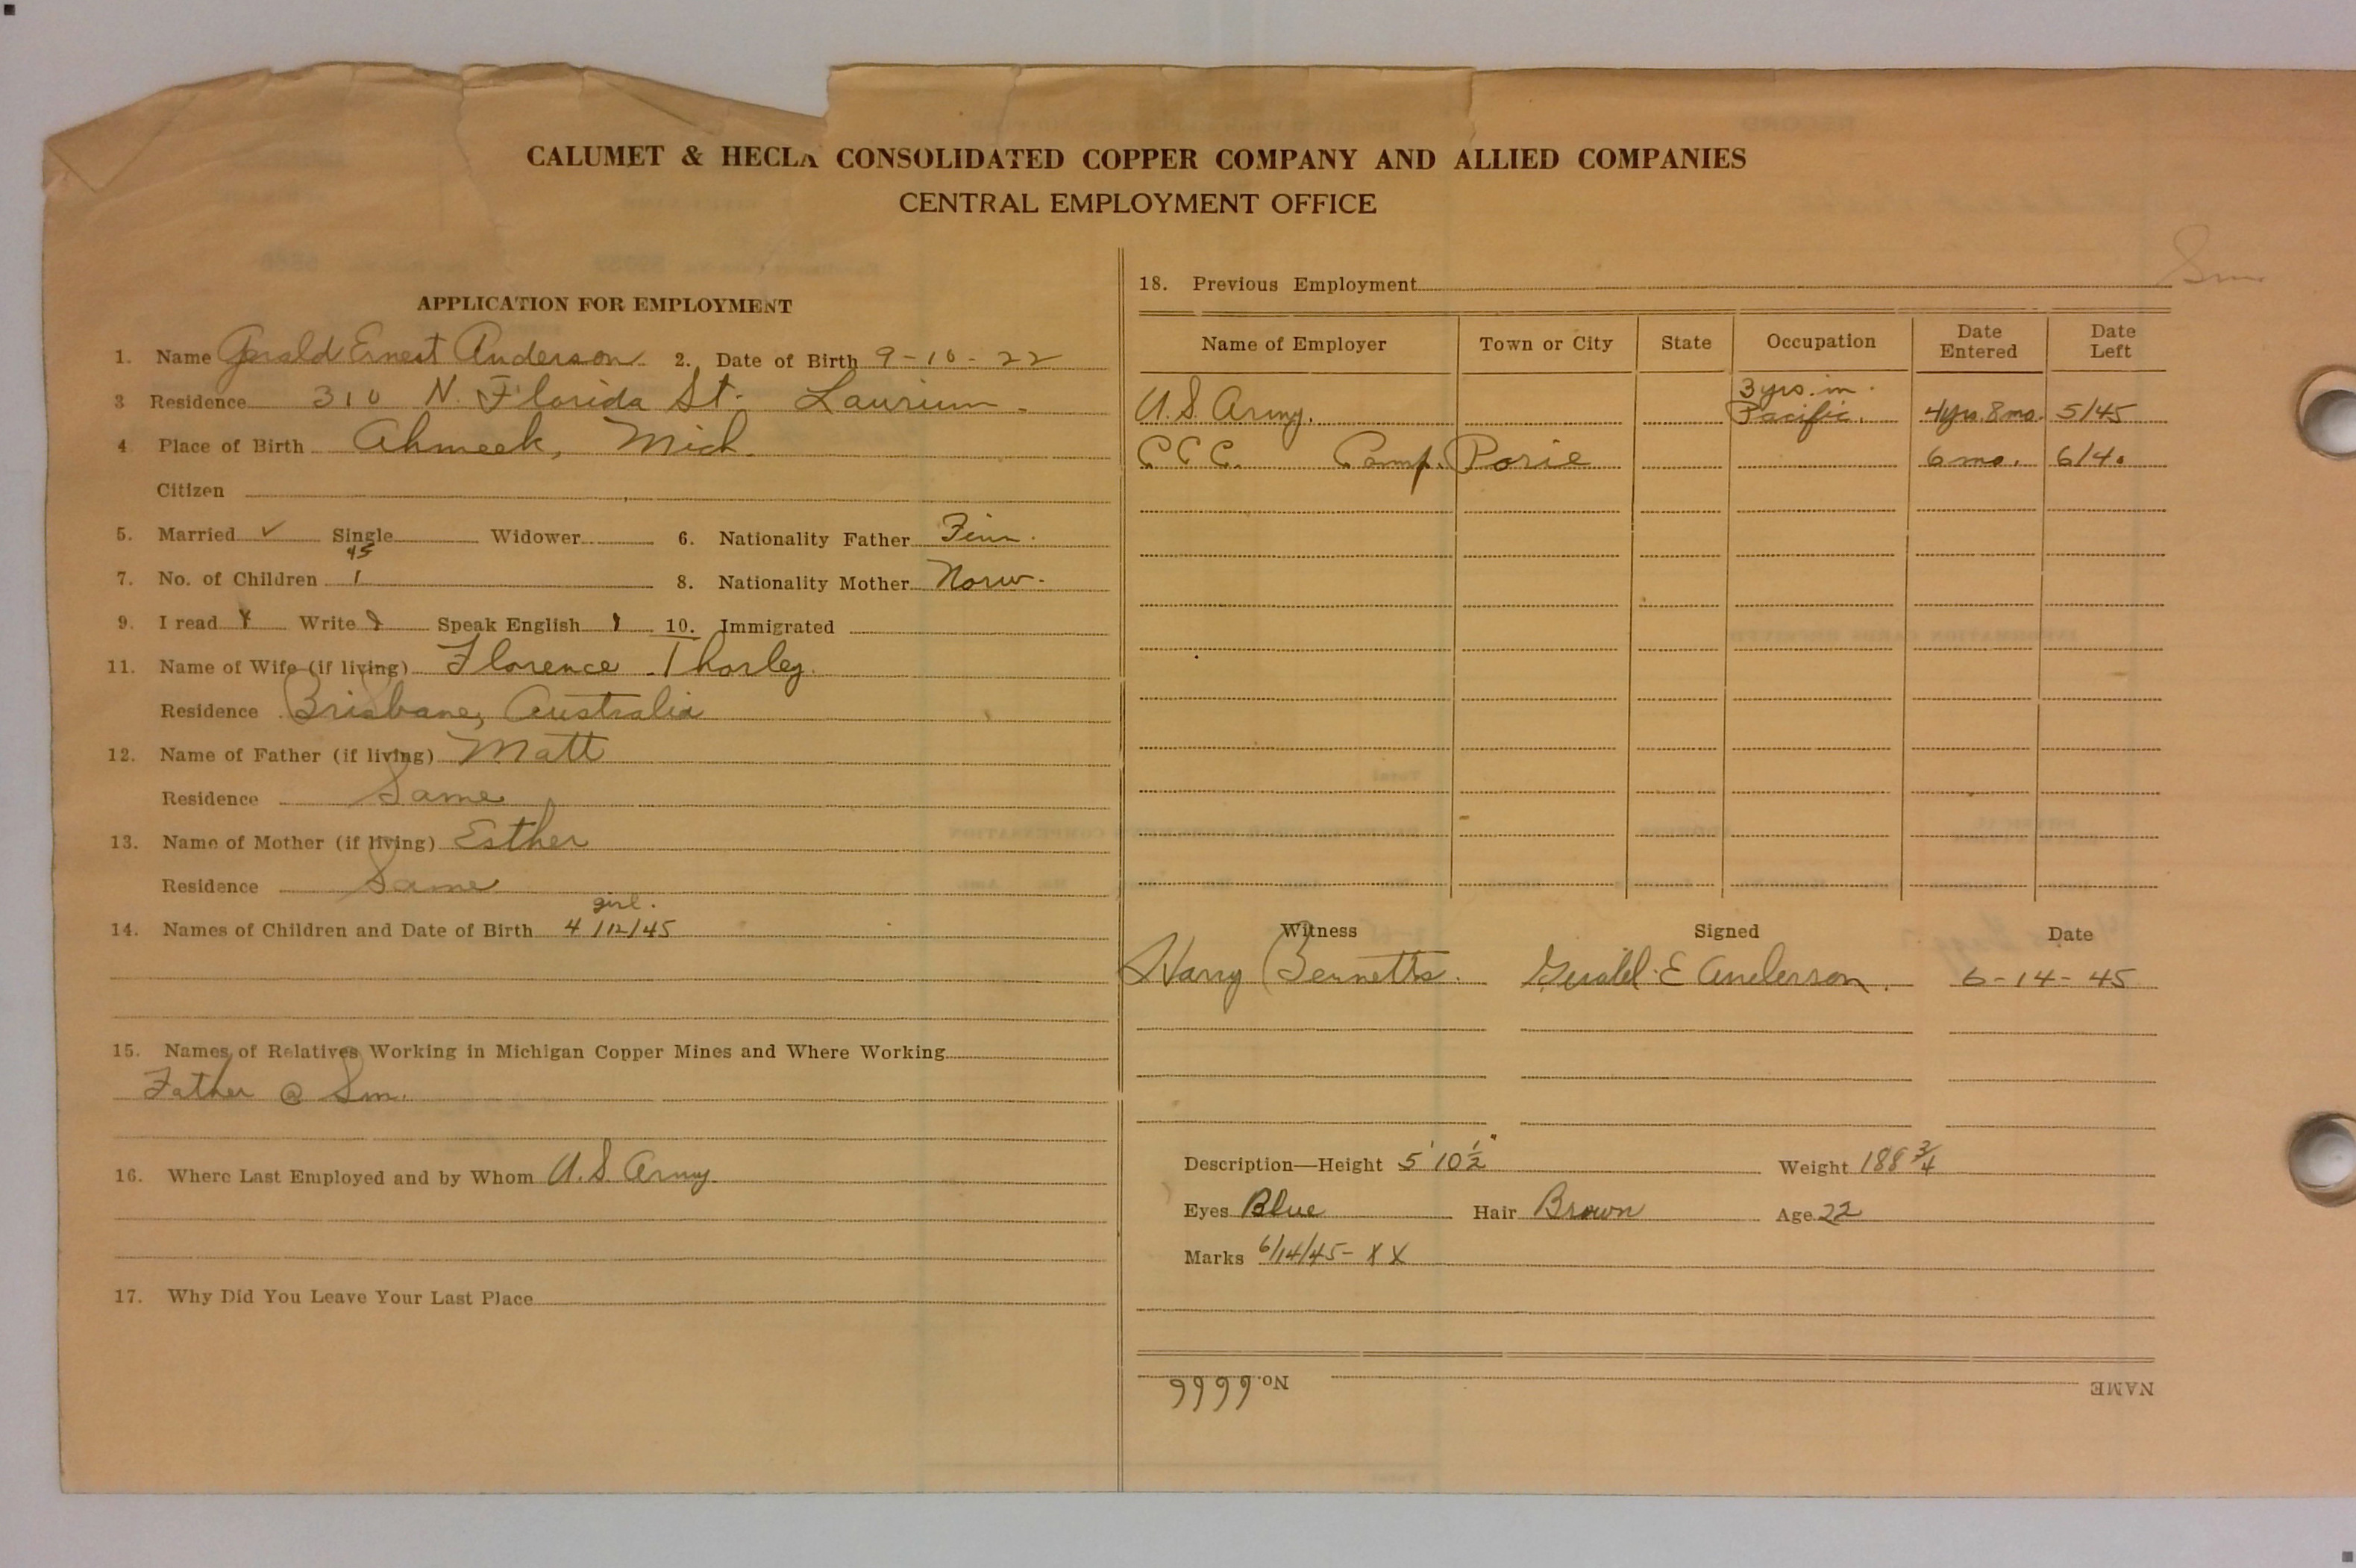 CALUMET & HECLA CONSOLIDATED COPPER COMPANY AND ALLIED COMPANIES
CENTRAL EMPLOYMENT OFFICE
APPLICATION FOR EMPLOYMENT
1. Name Gerald Ernest Anderson 2. Date of Birth 9-10-22
3 Residence 310 N. Florida St. Laurium.
4 Place of Birth Ahmeek, Mich.
Citizen
5. Married ✓ Single Widower 6. Nationality Father Finn.
45
7. No. of Children 1 8. Nationality Mother Norw.
9. I read Write Speak English 10. Immigrated
11. Name of Wife (if living) Florence Thorley.
Residence Brisbane, Australia
12. Name of Father (if living) Matt
Residence Same
13. Name of Mother (if living) Esther
Residence Same
girl.
14. Names of Children and Date of Birth 4/12/45
15. Names of Relatives Working in Michigan Copper Mines and Where Working
Father @ Sm.
16. Where Last Employed and by Whom U.S. Army.
17. Why Did You Leave Your Last Place
Sm
18. Previous Employment
Name of Employer Town or City State Occupation Date Entered Date Left
3 yrs. in.
U.S. Army. Pacific. 4yrs. 8mo. 5/45
C C C. Camp. Porie 6 mo. 6/40
Witness Signed Date
Harry Bennetts. Gerald E Anderson. 6-14-45
Description—Height 5' 10½" Weight 188¾
Eyes Blue Hair Brown Age 22
Marks 6/14/45- X X
NAME No. 6666